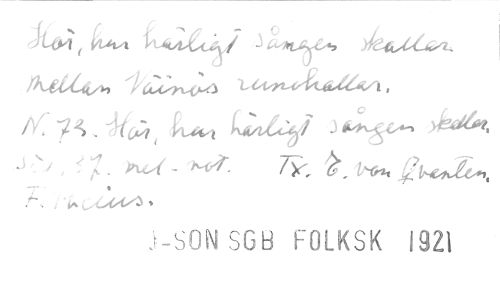 Hör, hur härligt sången skallar
mellan Väinös runohallar.
N. 73. Hör, hur härligt sången skallar,
sid. 37. mel-not. Tx. E. von Qvanten.
F. Pacius.
J-SON SGB FOLKSK 1921